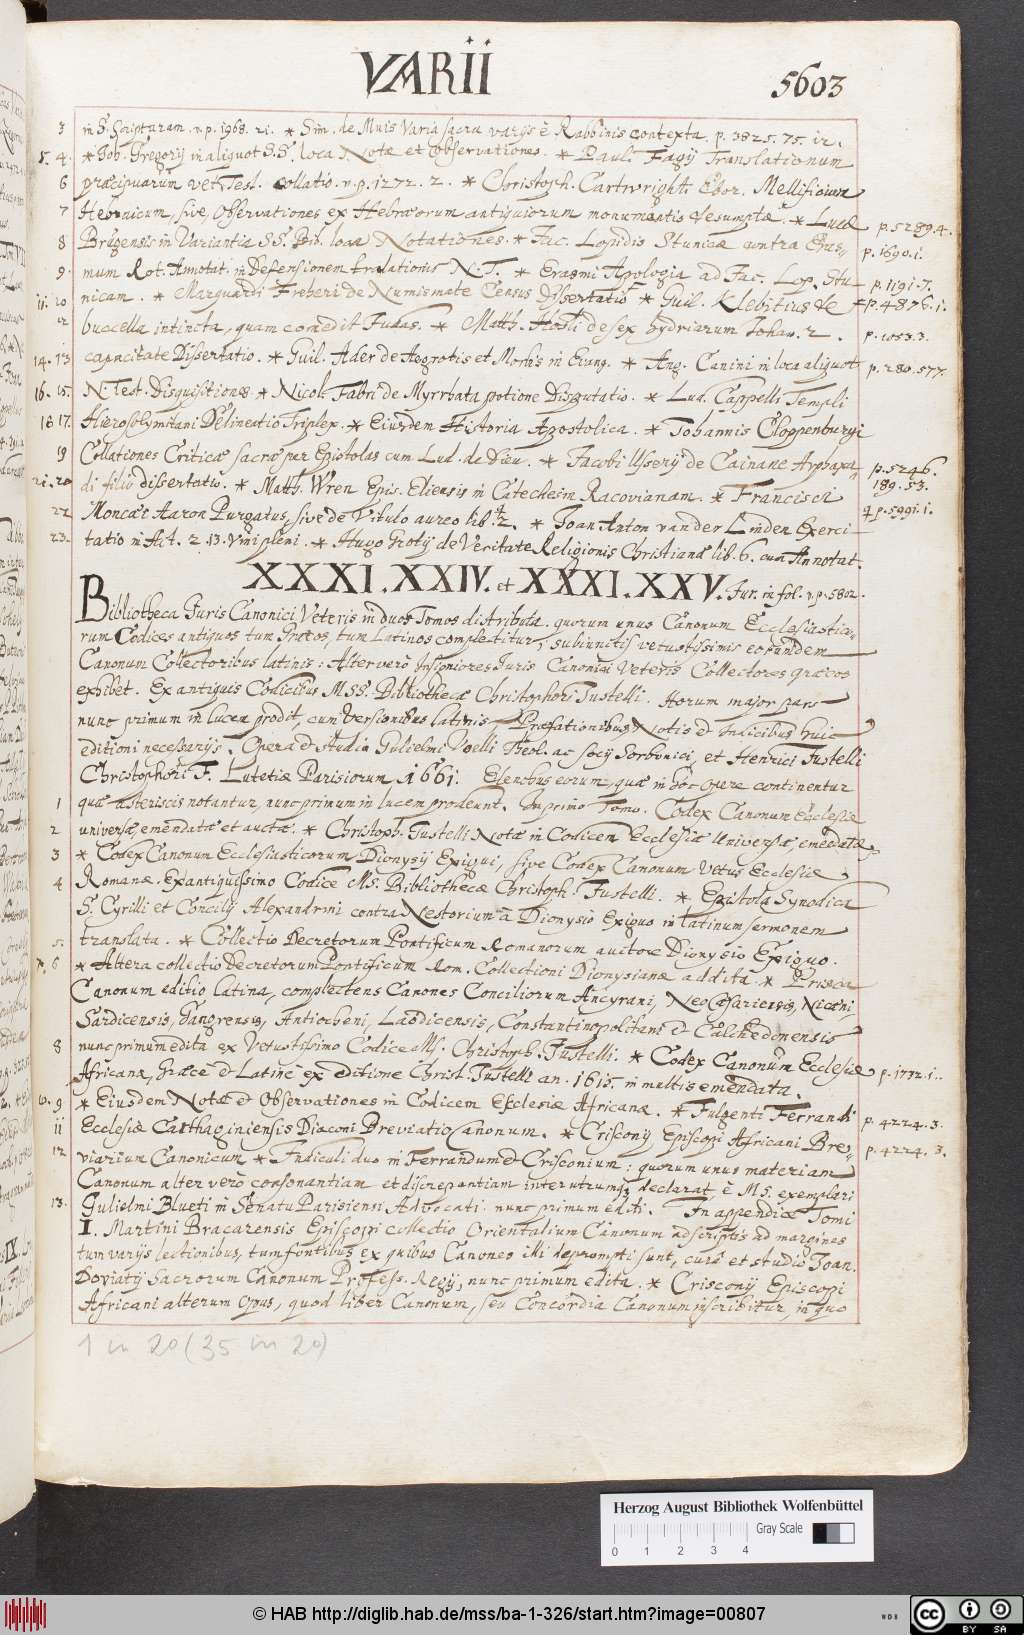 VARII
5603
3 in S. Scripturam. v. p. 1968. 21. * Sim. de Muis Varia sacra varijs è Rabbinis contexta. p. 3825. 75. ir.
5. 4. * Joh. Gregorij in aliquot S.S. loca Notæ et Observationes. * Pauli Fagij Translationum
6 præcipuarum vet. Test. collatio. v. p. 1272. 2. * Christoph. Cartwrighti Ebor. Mellificium
7 Hebraicum, sive, Observationes ex Hebræorum antiquiorum monumentis desumptæ. * Lucæ p. 5289. 4.
8 Brugensis in Variantia SS. Bib. loca Notationes. * Jac. Lopidis Stunicæ contra Eras= p. 1690. 1.
9. mum Rot. Annotat. in Defensionem tralationis N. T. * Erasmi Apologia ad Jac. Lop. Stu p. 1191. 7.
11. 10 nicam. * Marquardi Freheri de Numismate Census Dissertatio * Guil. Klebitius de p. 4876. 1.
12 buccella intincta, quam comedit Judas. * Matth. Hosti de sex hydriarum Johan. 2. p. 1053. 3.
14. 13 capacitate Dissertatio. * Guil. Ader de Aegrotis et Morbis in Evang. * Ang. Canini in loca aliquot p. 280. 577.
16. 15 N. Test. Disquisitiones * Nicol. Fabri de Myrrhata potione Disputatio. * Lud. Cappelli Templi
18 17. Hierosolymitani Delineatio Triplex. * Eiusdem Historia Apostolica. * Johannis Cloppenburgi
19 Collationes Criticæ sacræ per Epistolas cum Lud. de Dieu. * Jacobi Usserij de Cainane Arpaxa= p. 5246.
21. 20 di filio dissertatio. * Matth. Wren Epis. Eliensis in Catechesin Racovianam. * Francisci 189. 53.
22 Moncæi Aaron Purgatus, sive de Vitulo aureo lib. 2. * Joan Anton van der Linden Exerci p. 5991. 1.
23. tatio in Act. 2. 13. Vini pleni. * Hugo Grotij de Veritate Religionis Christianæ lib. 6. cum Annotat.
XXXI. XXIV. et XXXI. XXV. Jur. in fol. v. p. 5802.
Bibliotheca Juris Canonici Veteris in duos Tomos distributa. quorum unus Canonum Ecclesiastico=
rum Codices antiquos tum Græcos, tum Latinos complectitur, subiunctis vetustissimis eorundem
Canonum Collectoribus latinis: Alter verò Insigniores Juris Canonici Veteris Collectores græcos
exhibet. Ex antiquis Codicibus MSS. Bibliothecæ Christophori Justelli. Horum major pars
nunc primum in lucem prodit, cum Versionibus latinis Præfationibus, Notis et Indicibus huic
editioni necessarijs. Opera et Studio Gulielmi Voelli Theol. ac socij Sorbonici, et Henrici Justelli
Christophori F. Lutetiæ Parisiorum 1661. Elenchus eorum, quæ in hoc opere continentur
1 quæ asteriscis notantur, nunc primum in lucem prodeunt. In primo Tomo. Codex Canonum Ecclesiæ
2 universæ, emendatæ et auctæ. * Christoph. Justelli Notæ in Codicem Ecclesiæ Universæ, emēdatæ
3 * Codex Canonum Ecclesiasticorum Dionysij Exigui, sive Codex Canonum Vetus Ecclesiæ
4 Romanæ. Ex antiquissimo Codice MS. Bibliothecæ Christoph. Justelli. * Epistola Synodica
S. Cyrilli et Concilij Alexandrini contra Nestorium à Dionysio Exiguo in latinum sermonem
5. translata. * Collectio Decretorum Pontificum Romanorum auctore Dionysio Exiguo.
7. 6 * Altera collectio Decretorum Pontificum Rom. Collectioni Dionysianæ addita * Prisca
Canonum editio latina, complectens Canones Conciliorum Ancyrani, NeoCæsariensis, Nicæni,
Sardicensis, Gangrensis, Antiocheni, Laodicensis, Constantinopolitani et Calchedonensis
8 nunc primum edita ex Vetustissimo Codice MS. Christoph. Justelli. * Codex Canonum Ecclesiæ p. 1772. 1.
Africanæ, Græcè et Latinè ex editione Christ. Justelli an. 1615. in multis emendata.
10. 9 * Eiusdem Notæ et Observationes in Codicem Ecclesiæ Africanæ. * Fulgenti Ferrandi p. 4224. 3.
11 Ecclesiæ Carthaginiensis Diaconi Breviatio Canonum. * Crisconij Episcopi Africani Bre= p. 4224. 3.
12 viarium Canonicum * Indiculi duo in Ferrandum et Crisconium: quorum unus materiam
Canonum alter verò consonantiam et discrepantiam inter utrumq; declarat è MS. exemplari
13. Gulielmi Blueti in Senatu Parisiensi Advocati nunc primum editi. In appendice Tomi
I. Martini Bracarensis Episcopi collectio Orientalium Canonum adscriptis ad margines
tum varijs lectionibus, tum fontibus, ex quibus Canones illi deprompti sunt, curâ et studio Joan.
Doviatij Sacrorum Canonum Profess. Regij, nunc primum edita. * Crisconij Episcopi
Africani alterum Opus, quod liber Canonum, seu Concordia Canonum inscribitur, in quo
1 m 20 (35 m 20)
Herzog August Bibliothek Wolfenbüttel
Gray Scale
0 1 2 3 4
© HAB http://diglib.hab.de/mss/ba-1-326/start.htm?image=00807
WDB
cc BY SA